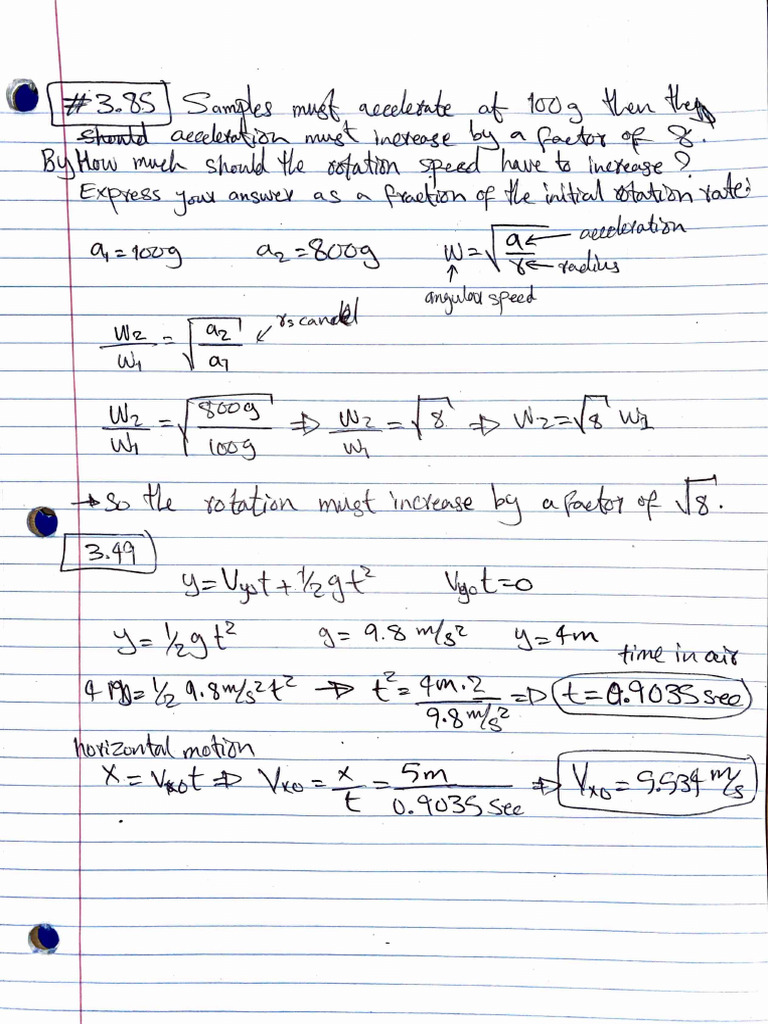 #3.85 Samples must accelerate at 100g then the
should acceleration must increase by a factor of 8.
By How much should the rotation speed have to increase?
Express your answer as a fraction of the initial rotation rate:
a₁=100g a₂=800g w=√(a/r) ← acceleration
← radius
angular speed
w₂/w₁=√(a₂/a₁) ↙ rs cancel
w₂/w₁=√(800g/100g) ⇒ w₂/w₁=√8 ⇒ w₂=√8 w₁
→ So the rotation must increase by a factor of √8.
3.49
y=Vy₀t+½gt² Vy₀t=0
y=½gt² g=9.8 m/s² y=4m
time in air
4 m=½ 9.8m/s²t² → t²=4m·2/9.8m/s² ⇒ t=0.9035sec
horizontal motion
X=Vx₀t ⇒ Vx₀=x/t=5m/0.9035sec ⇒ Vx₀=5.534 m/s